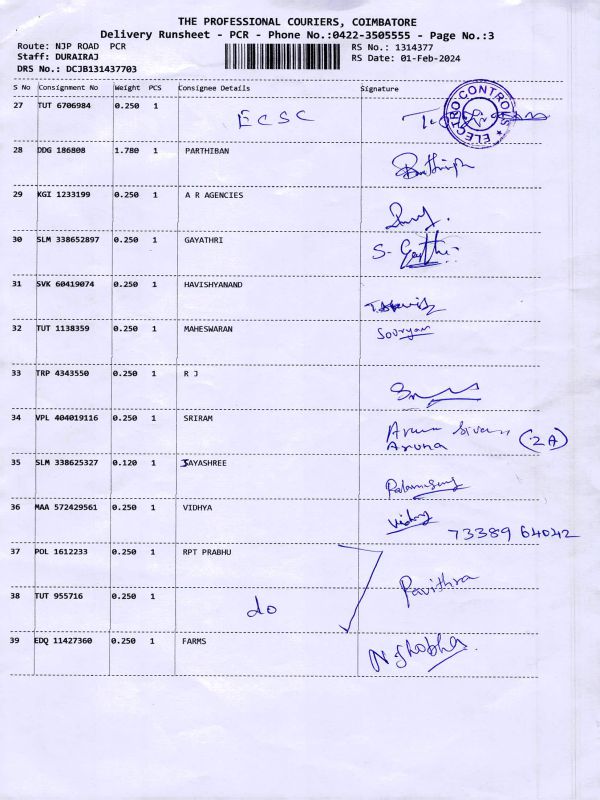 THE PROFESSIONAL COURIERS, COIMBATORE
Delivery Runsheet - PCR - Phone No.:0422-3505555 - Page No.:3
Route: NJP ROAD PCR RS No.: 1314377
Staff: DURAIRAJ RS Date: 01-Feb-2024
DRS No.: DCJB131437703
S No Consignment No Weight PCS Consignee Details Signature
27 TUT 6706984 0.250 1 ECSC
ELECTRO CONTROLS
28 DDG 186808 1.780 1 PARTHIBAN
29 KGI 1233199 0.250 1 A R AGENCIES
30 SLM 338652897 0.250 1 GAYATHRI
31 SVK 60419074 0.250 1 HAVISHYANAND
32 TUT 1138359 0.250 1 MAHESWARAN
33 TRP 4343550 0.250 1 R J
34 VPL 404019116 0.250 1 SRIRAM
Aruna (2A)
35 SLM 338625327 0.120 1 JAYASHREE
36 MAA 572429561 0.250 1 VIDHYA
73389 64042
37 POL 1612233 0.250 1 RPT PRABHU
Pavithra
38 TUT 955716 0.250 1 do
39 EDQ 11427360 0.250 1 FARMS
N. Shobha.